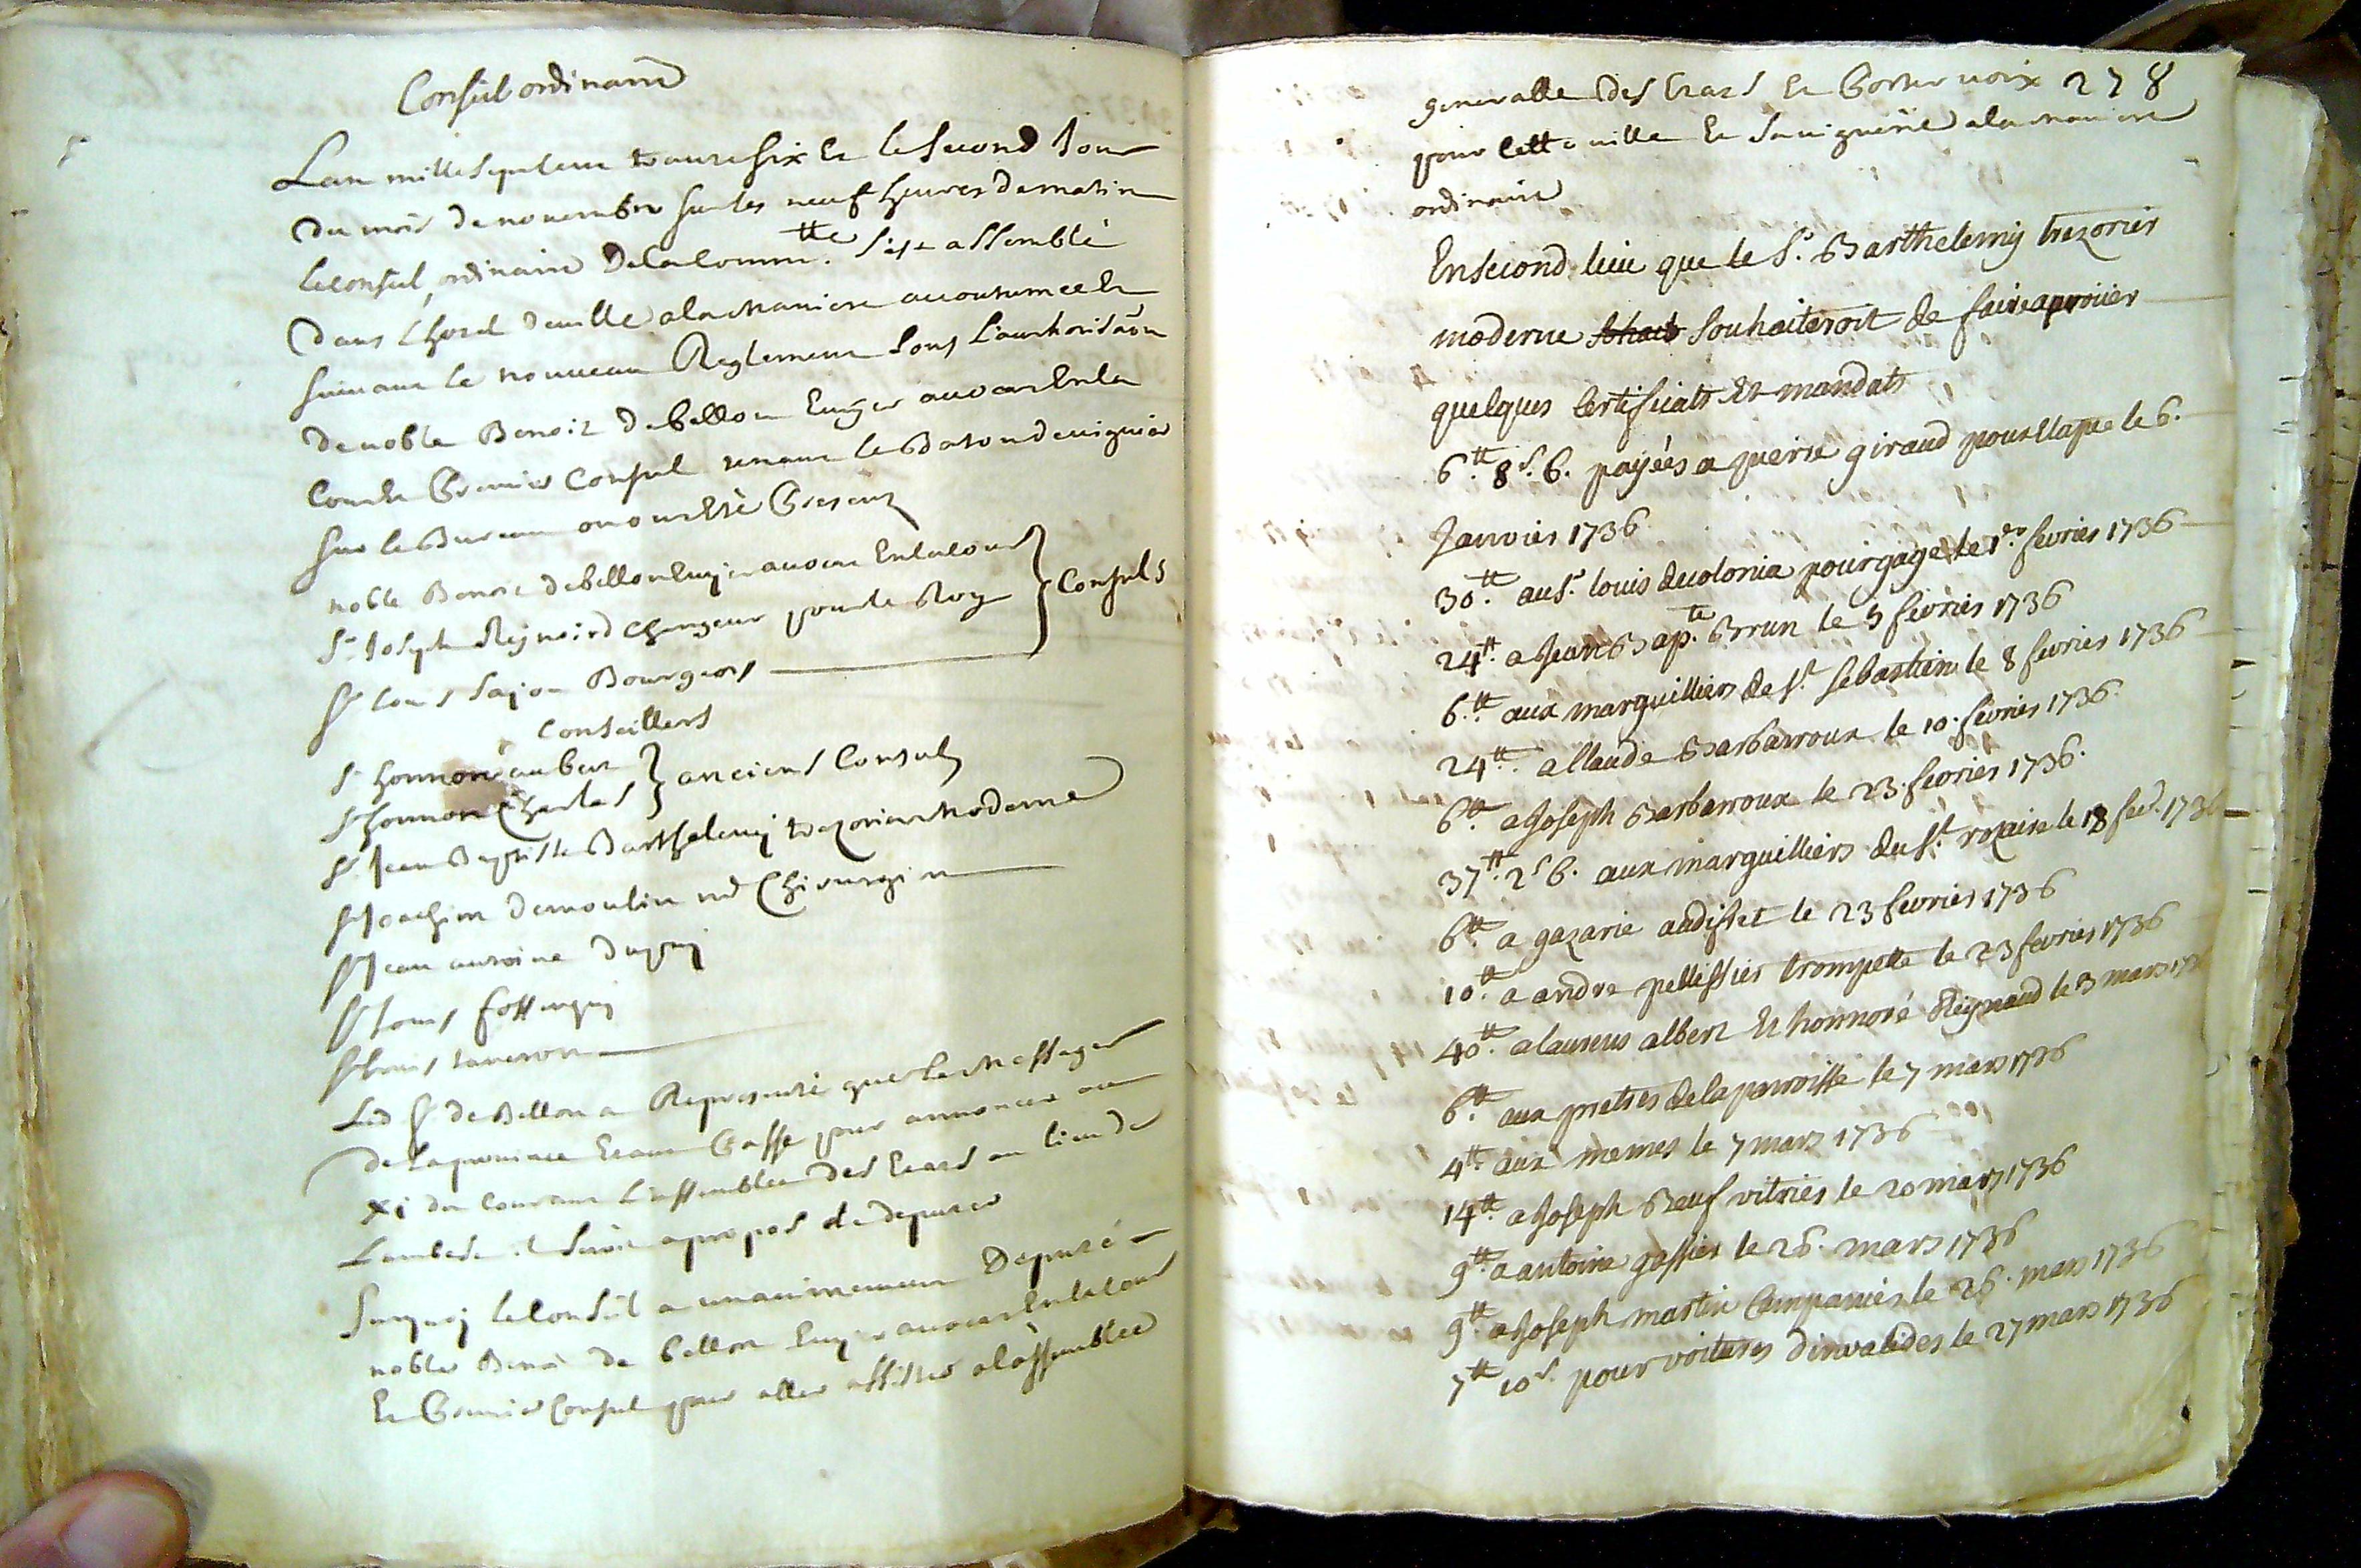 Conseil ordinaire
Lan mille sept cent trante six et le second Jour
du mois de novembre sur les neuf heures de matin
le conseil ordinaire de la Commu.tté s'est assemblé
dans l'hotel de ville a la maniere accoutumee et
suivant le nouveau Reglement sous l'authorisaôn
de noble Benoit de bellon Ecuyer avocat En la
Cour Et Premier Consul tenant le Baton de viguier
sur le Bureau ou ont Eté Presens
noble Benoit de bellon Ecuyer avocat En la cour
Sr Joseph Reynoird changeur pour le Roy } Consuls
Sr Louis Bourgeois
Conseillers
Sr honnoré aubert } anciens Consuls
Sr honnoré Charles
Sr Jean Baptiste Barthelemy trezorier moderne
Sr Joachim demoulin md Chirurgien
Sr Jean antoine
Sr Louis
Sr Louis taneron
Led Sr de Bellon a Representé que le Messager
de la province Etant Passé pour annoncer au
xi du courant L'assemblée des Etats au lieu de
Lambesc il seroit a propos de deputer
Surquoy le Conseil a unanimement deputé
noble Benoit de bellon Ecuyer avocat En la cour
Et Premier Consul pour aller assister a l'assemblée
generalle des Etats Et Porter voix 278
pour cette ville Et sa viguerie a la maniere
ordinaire
En second lieu que le Sr. Barthelemy trezorier
moderne souhaiteroit de faire aprouver
quelques certificats Et mandats
6.tt 8s. 6. payées a pierre giraud pour le 6.
Janvier 1736
30.tt au Sr. louis decolonia pour gage le 1er. fevrier 1736
24.tt a Jean Bap.te Brun le 5 fevrier 1736
6.tt aux marguilliers de St. sebastien le 8 fevrier 1736
24.tt a Claude Barbarroux le 10. fevrier 1736.
6.tt a Joseph Barbarroux le 23. fevrier 1736.
37.tt 2s 6. aux marguilliers du St. rozaire le 18 fevr. 1736
6.tt a gazarie audiffret le 23 fevrier 1736
10.tt a andre pellissier trompette le 23 fevrier 1736
40.tt a laurens albert Et honnoré Reynaud le 3 mars 1736
6.tt aux pretres de la parroisse le 7 mars 1736
4.tt aux memes le 7 mars 1736
14.tt a Joseph Beuf vitrier le 20 mars 1736
9.tt a antoine gassier le 26. mars 1736
9.tt a Joseph martin Campanier le 26. mars 1736
7.tt 10s. pour voitures d'invalides le 27 mars 1736